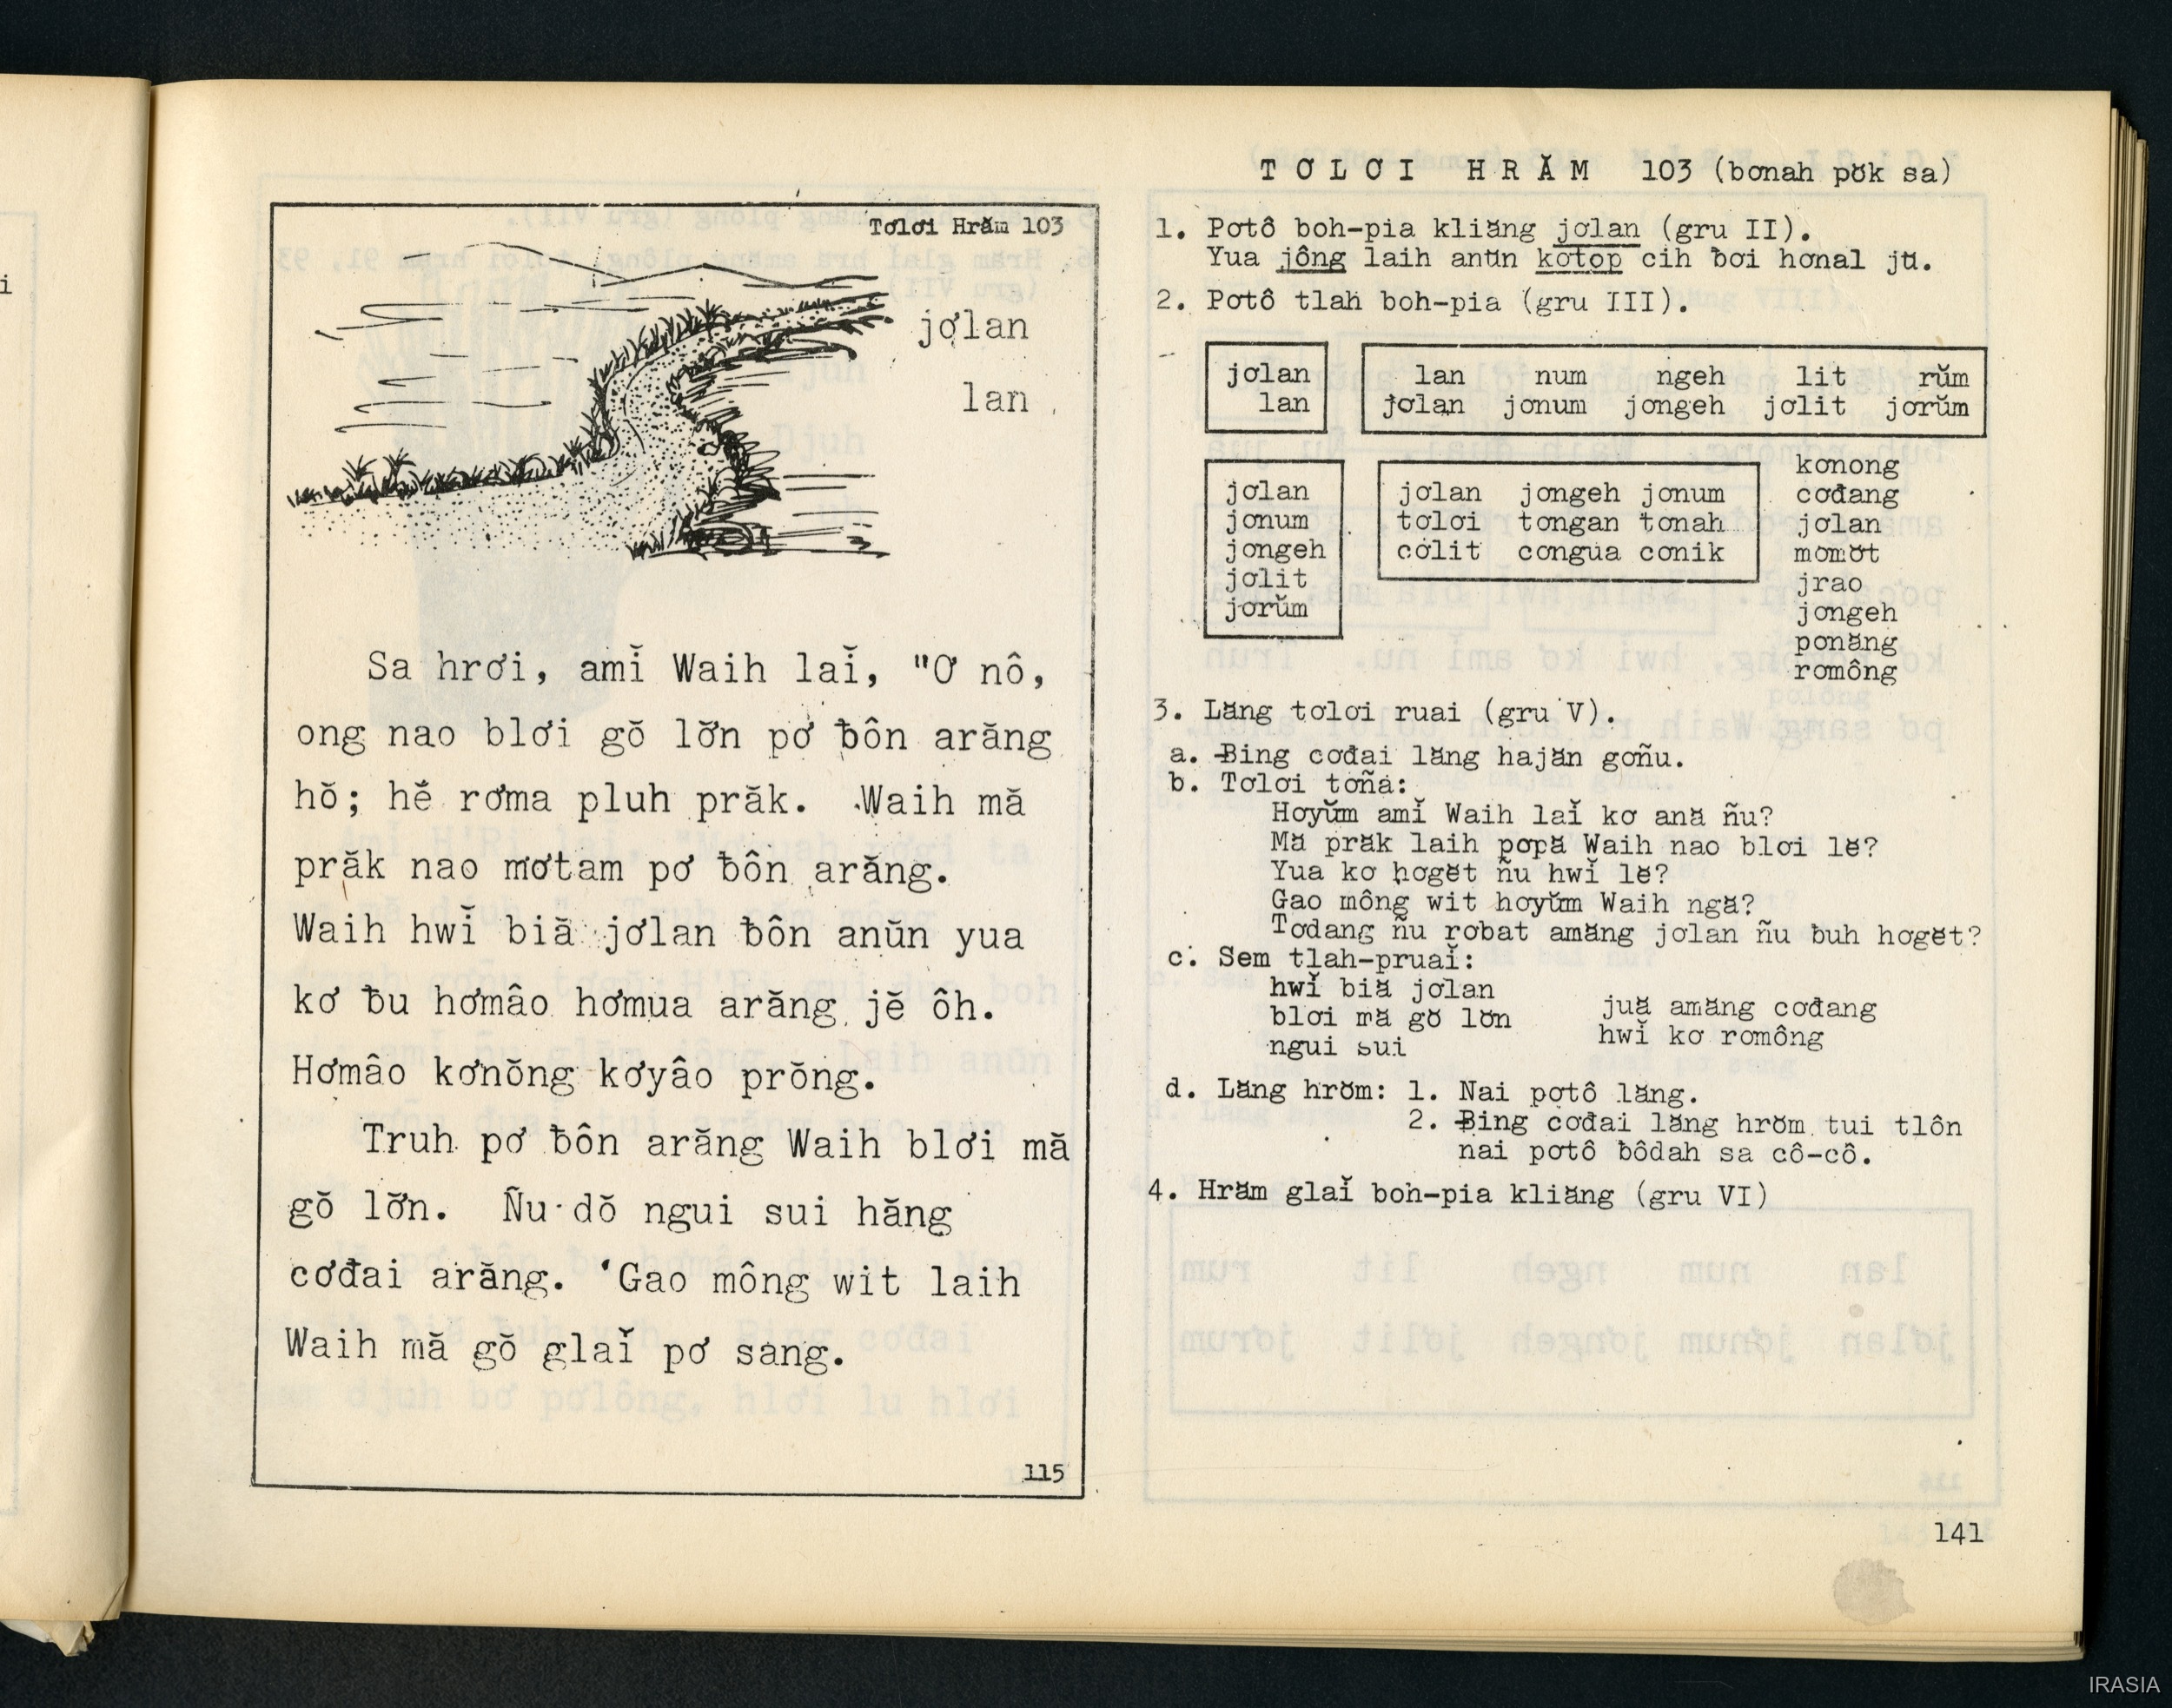 Tơlơi Hrăm 103
jơlan
lan
Sa hrơi, amĭ Waih laĭ, "Ơ nô,
ong nao blơi gŏ lơ̆n pơ ƀôn arăng
hŏ; hĕ rơma pluh prăk. Waih mă
prăk nao mơtam pơ ƀôn arăng.
Waih hwĭ biă jơlan ƀôn anŭn yua
kơ ƀu hơmâo hơmua arăng jĕ ôh.
Hơmâo kơnŏng kơyâo prŏng.
Truh pơ ƀôn arăng Waih blơi mă
gŏ lơ̆n. Ñu dŏ ngui sui hăng
cơđai arăng. Gao mông wit laih
Waih mă gŏ glaĭ pơ sang.
115
TƠLƠI HRĂM 103 (bơnah pŏk sa)
1. Pơtô boh-pia kliăng jơlan (gru II).
Yua jông laih anŭn kơtop cih ƀơi hơnal jŭ.
2. Pơtô tlah boh-pia (gru III).
jơlan
lan
lan num ngeh lit rŭm
jơlan jơnum jơngeh jơlit jơrŭm
jơlan
jơnum
jơngeh
jơlit
jơrŭm
jơlan jơngeh jơnum
tơlơi tơngan tơnah
cơlit cơngua cơnik
kơnong
cơđang
jơlan
mơmŏt
jrao
jơngeh
pơnăng
rơmông
3. Lăng tơlơi ruai (gru V).
a. Ƀing cơđai lăng hajăn gơñu.
b. Tơlơi tơña:
Hơyŭm amĭ Waih laĭ kơ ană ñu?
Mă prăk laih pơpă Waih nao blơi lĕ?
Yua kơ hơgĕt ñu hwĭ lĕ?
Gao mông wit hơyŭm Waih ngă?
Tơdang ñu rơbat amăng jơlan ñu ƀuh hơgĕt?
c. Sem tlah-pruaĭ:
hwĭ biă jơlan
blơi mă gŏ lơ̆n
ngui sui
juă amăng cơđang
hwĭ kơ rơmông
d. Lăng hrŏm: 1. Nai pơtô lăng.
2. Ƀing cơđai lăng hrŏm tui tlôn
nai pơtô ƀôdah sa cô-cô.
4. Hrăm glaĭ boh-pia kliăng (gru VI)
141
IRASIA